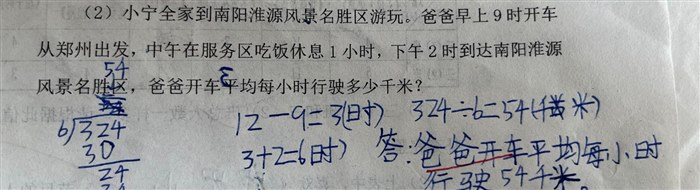 （2）小宁全家到南阳淮源风景名胜区游玩。爸爸早上9时开车
从郑州出发，中午在服务区吃饭休息1小时，下午2时到达南阳淮源
风景名胜区，爸爸开车平均每小时行驶多少千米？
54
6)324
30
24
24
12-9=3(时)
3+2=6时)
324÷6=54(千米)
答:爸爸开车平均每小时
行驶54千米。